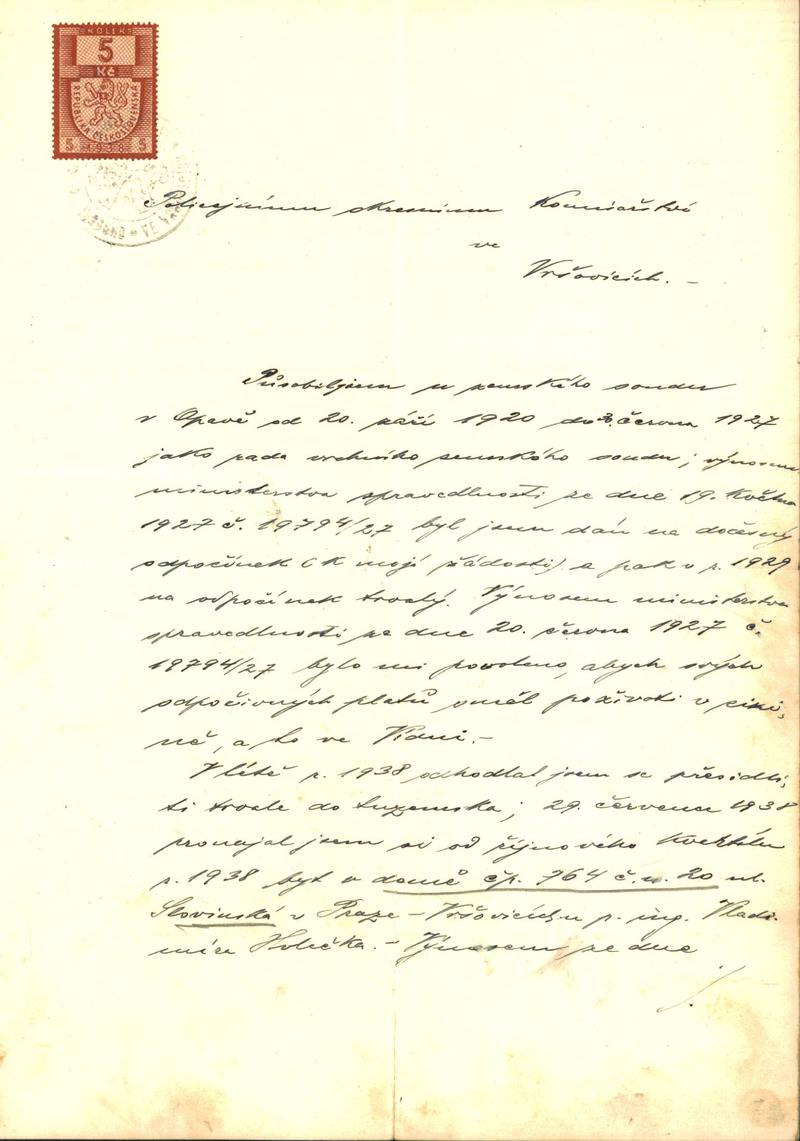 KOLEK
5
Kč
REPUBLIKA ČESKOSLOVENSKÁ
5 1938 5
Policejnímu okresnímu Komisařství
ve
Vršovicích. –
Působil jsem u zemského soudu
v Opavě od 20. září 1920 do června 1927
jako rada vrchního zemského soudu; výnosem
ministerstva spravedlnosti ze dne 19. Května
1927 č. 19794/27 byl jsem dán na dočasný
odpočinek (k mojí žádosti) a pak v r. 1929
na odpočinek trvalý. Výnosem ministerstva
spravedlnosti ze dne 20. června 1927 č.
19794/27 bylo mi povoleno, abych svých
odpočivných platů směl požívati v cizi-
ně, a to ve Vídni. –
V létě r. 1938 odhodlal jsem se přesídli-
ti trvale do tuzemska; 29. července 1938
pronajal jsem si od říjnového Kvartálu
r. 1938 byt v domě čp. 764 č. n. 20 ul.
Slovinská v Praze – Vršovicích u p. ing. Vladi-
míra – Výnosem ze dne
./.